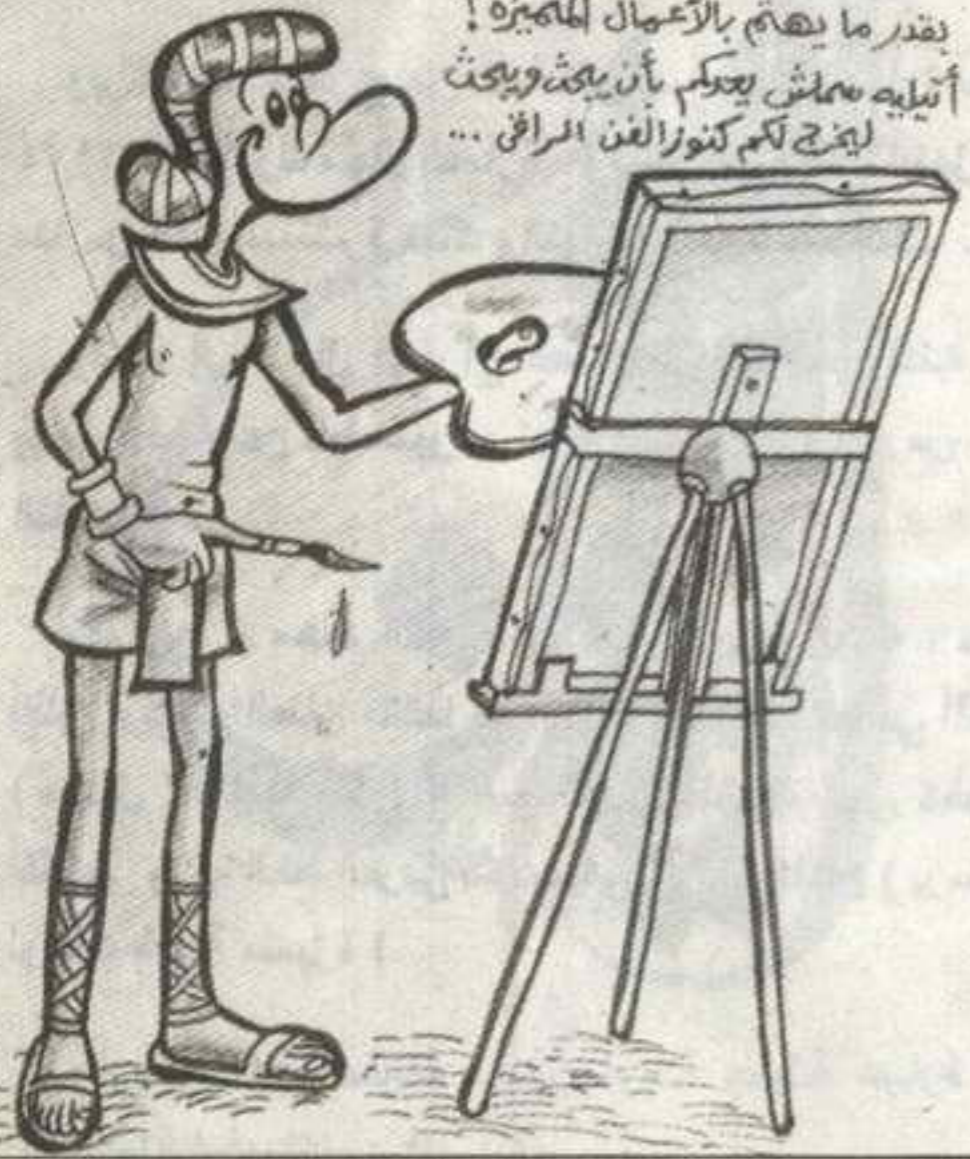 بقدر ما يهتم بالأعمال المتميزة !
أتيليه سملش يعدكم بأن يبحث ويبحث
ليخرج لكم كنوز الفن الراقى ...